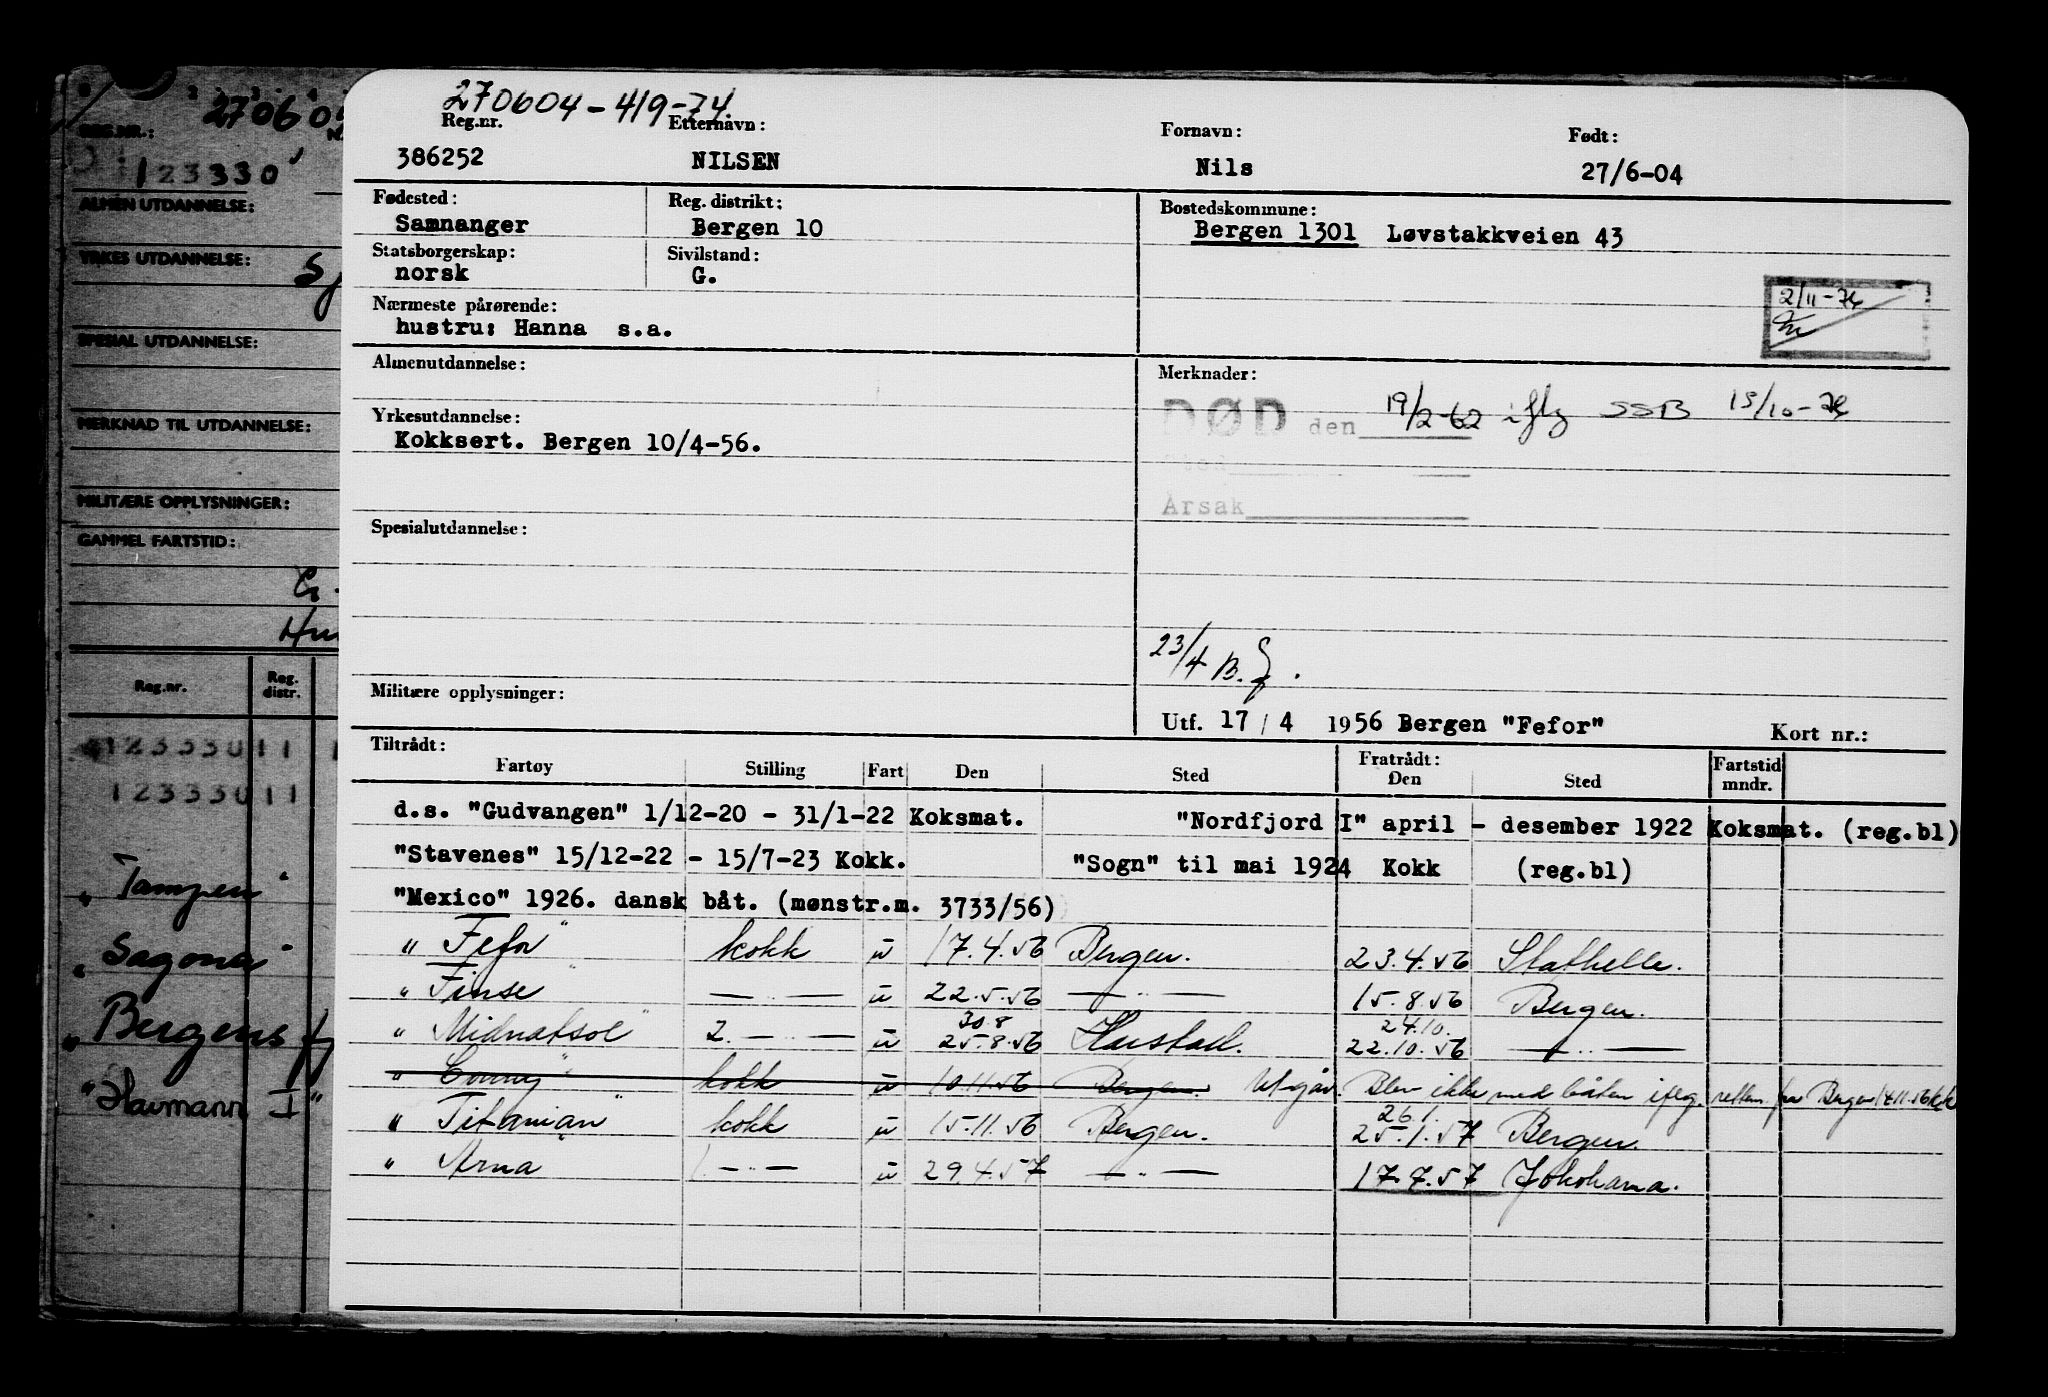 270604-419-74
Reg.nr. Etternavn: Fornavn: Født:
386252 NILSEN Nils 27/6-04
Fødested: Reg. distrikt: Bostedskommune:
Samnanger Bergen 10 Bergen 1301 Løvstakkveien 43
Statsborgerskap: Sivilstand:
norsk G.
2/11-74
Nærmeste pårørende:
hustru: Hanna s.a.
Almenutdannelse: Merknader:
DØD den 19/2-62 iflg SSB 15/10-74
Yrkesutdannelse:
Kokksert. Bergen 10/4-56.
Sted
Årsak
Spesialutdannelse:
23/4 B.
Militære opplysninger:
Utf. 17/4 1956 Bergen "Fefor" Kort nr.:
Tiltrådt: Fratrådt:
Fartøy Stilling Fart Den Sted Den Sted Fartstid mndr.
d.s. "Gudvangen" 1/12-20 - 31/1-22 Koksmat. "Nordfjord I" april - desember 1922 Koksmat. (reg.bl)
"Stavenes" 15/12-22 - 15/7-23 Kokk. "Sogn" til mai 1924 Kokk (reg.bl)
"Mexico" 1926. dansk båt. (mønstr.m. 3733/56)
" Fefor " kokk u 17.4.56 Bergen. 23.4.56 Stathelle.
" Finse " — " — u 22.5.56 — " — 15.8.56 Bergen.
30.8 24.10.
" Midnatsol " 2. — " — u 25.8.56 Harstad. 22.10.56 — " —
" Conny " kokk u 10.11.56 Bergen. Utgår. Blev ikke med båten iflg. retten. fra Bergen 14.11.56
26.1.
" Titanian " kokk u 15.11.56 Bergen. 25.1.57 Bergen.
" Arna — " — u 29.4.57 — " — 17.7.57 Yokohama.
27060
REG.NR.:
123330
ALMEN UTDANNELSE:
YRKES UTDANNELSE:
SPESIAL UTDANNELSE:
MERKNAD TIL UTDANNELSE:
MILITÆRE OPPLYSNINGER:
GAMMEL FARTSTID:
Reg.nr. Reg. distr.
12333011
12333011
" Tampen "
" Sagona "
" Bergensfj
" Havmann I "